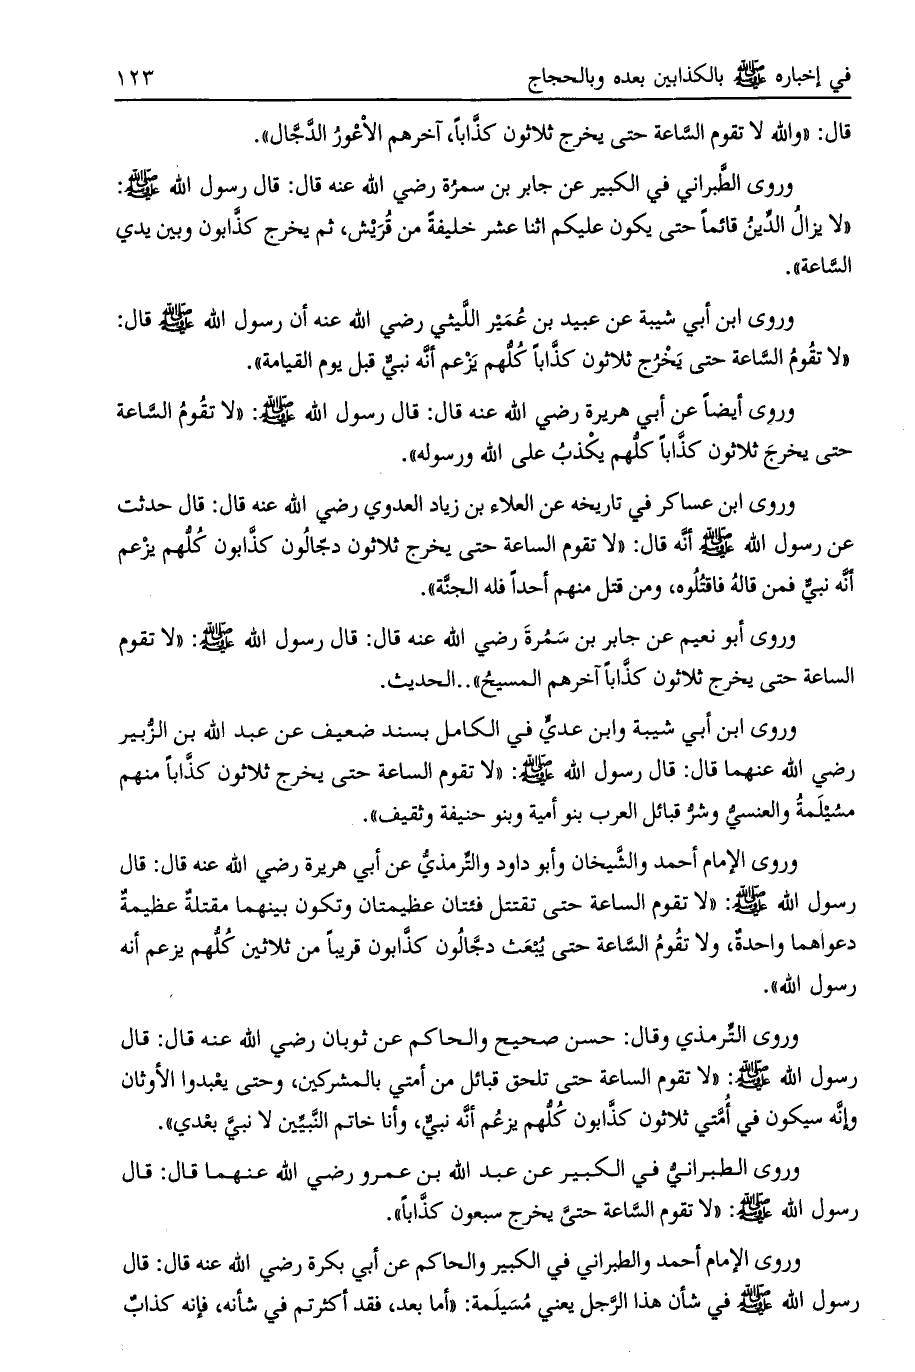 في إخباره ﷺ بالكذابين بعده وبالحجاج ١٢٣
قال: «والله لا تقوم السَّاعة حتى يخرج ثلاثون كذَّاباً، آخرهم الأعْورُ الدَّجَّال».
وروى الطَّبراني في الكبير عن جابر بن سمرُة رضي الله عنه قال: قال رسول الله ﷺ:
«لا يزالُ الدِّينُ قائماً حتى يكون عليكم اثنا عشر خليفةً من قُرَيْش، ثم يخرج كذَّابون وبين يدي
السَّاعة».
وروى ابن أبي شيبة عن عبيد بن عُمَيْر اللَّيثي رضي الله عنه أن رسول الله ﷺ قال:
«لا تقُومُ السَّاعة حتى يَخْرُج ثلاثون كذَّاباً كُلُّهم يَزْعم أنَّه نبيٌّ قبل يوم القيامة».
وروى أيضاً عن أبي هريرة رضي الله عنه قال: قال رسول الله ﷺ: «لا تقُومُ السَّاعة
حتى يخرجَ ثلاثون كذَّاباً كلُّهم يكْذبُ على الله ورسوله».
وروى ابن عساكر في تاريخه عن العلاء بن زياد العدوي رضي الله عنه قال: قال حدثت
عن رسول الله ﷺ أنَّه قال: «لا تقوم الساعة حتى يخرج ثلاثون دجّالُون كذَّابون كُلُّهم يزْعم
أنَّه نبيٌّ فمن قالهُ فاقتُلُوه، ومن قتل منهم أحداً فله الجنَّة».
وروى أبو نعيم عن جابر بن سَمُرةَ رضي الله عنه قال: قال رسول الله ﷺ: «لا تقوم
الساعة حتى يخرج ثلاثون كذَّاباً آخرهم المسيحُ»..الحديث.
وروى ابن أبي شيبة وابن عديٍّ في الكامل بسند ضعيف عن عبد الله بن الزُّبير
رضي الله عنهما قال: قال رسول الله ﷺ: «لا تقوم الساعة حتى يخرج ثلاثون كذَّاباً منهم
مسُيْلَمةُ والعنسيُّ وشرُّ قبائل العرب بنو أمية وبنو حنيفة وثقيف».
وروى الإمام أحمد والشَّيخان وأبو داود والتِّرمذيُّ عن أبي هريرة رضي الله عنه قال: قال
رسول الله ﷺ: «لا تقوم الساعة حتى تقتتل فئتان عظيمتان وتكون بينهما مقتلةٌ عظيمةٌ
دعواهما واحدةٌ، ولا تقُومُ السَّاعة حتى يُبْعَث دجَّالُون كذَّابون قريباً من ثلاثين كُلُّهم يزعم أنه
رسول الله».
وروى التِّرمذي وقال: حسن صحيح والحاكم عن ثوبان رضي الله عنه قال: قال
رسول الله ﷺ: «لا تقوم الساعة حتى تلحق قبائل من أمتي بالمشركين، وحتى يعْبدوا الأوثان
وإنَّه سيكون في أُمَّتي ثلاثون كذَّابون كُلُّهم يزعُم أنَّه نبيٌّ، وأنا خاتم النَّبيِّين لا نبيَّ بعْدي».
وروى الطبرانيُّ في الكبير عن عبد الله بن عمرو رضي الله عنهما قال: قال
رسول الله ﷺ: «لا تقوم السَّاعة حتىَّ يخرج سبعون كذَّاباً».
وروى الإمام أحمد والطبراني في الكبير والحاكم عن أبي بكرة رضي الله عنه قال: قال
رسول الله ﷺ في شأن هذا الرَّجل يعني مُسَيلَمة: «أما بعد، فقد أكثرتم في شأنه، فإنه كذابٌ